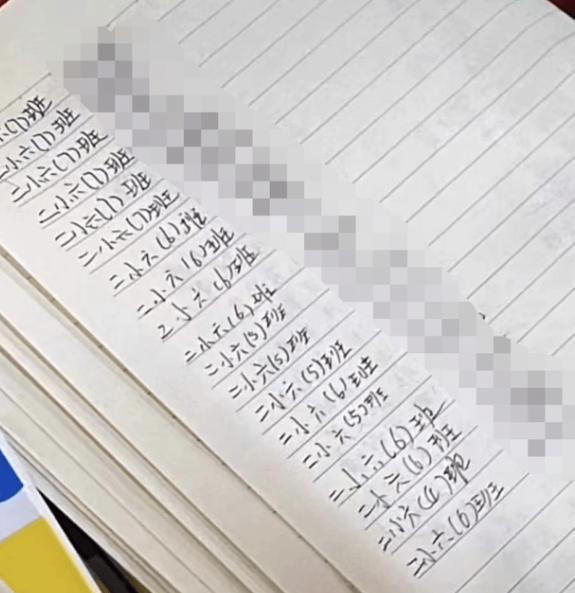 六(7)班
二小六(7)班
二小六(7)班
二小六(7)班
二小六(7)班
二小六(7)班
二小六(6)班
二小六(6)班
二小六(6)班
二小六(6)班
二小六(5)班
二小六(5)班
二小六(5)班
二小六(6)班
二小六(5)班
二小六(6)班
二小六(6)班
二小六(6)班
二小六(6)班